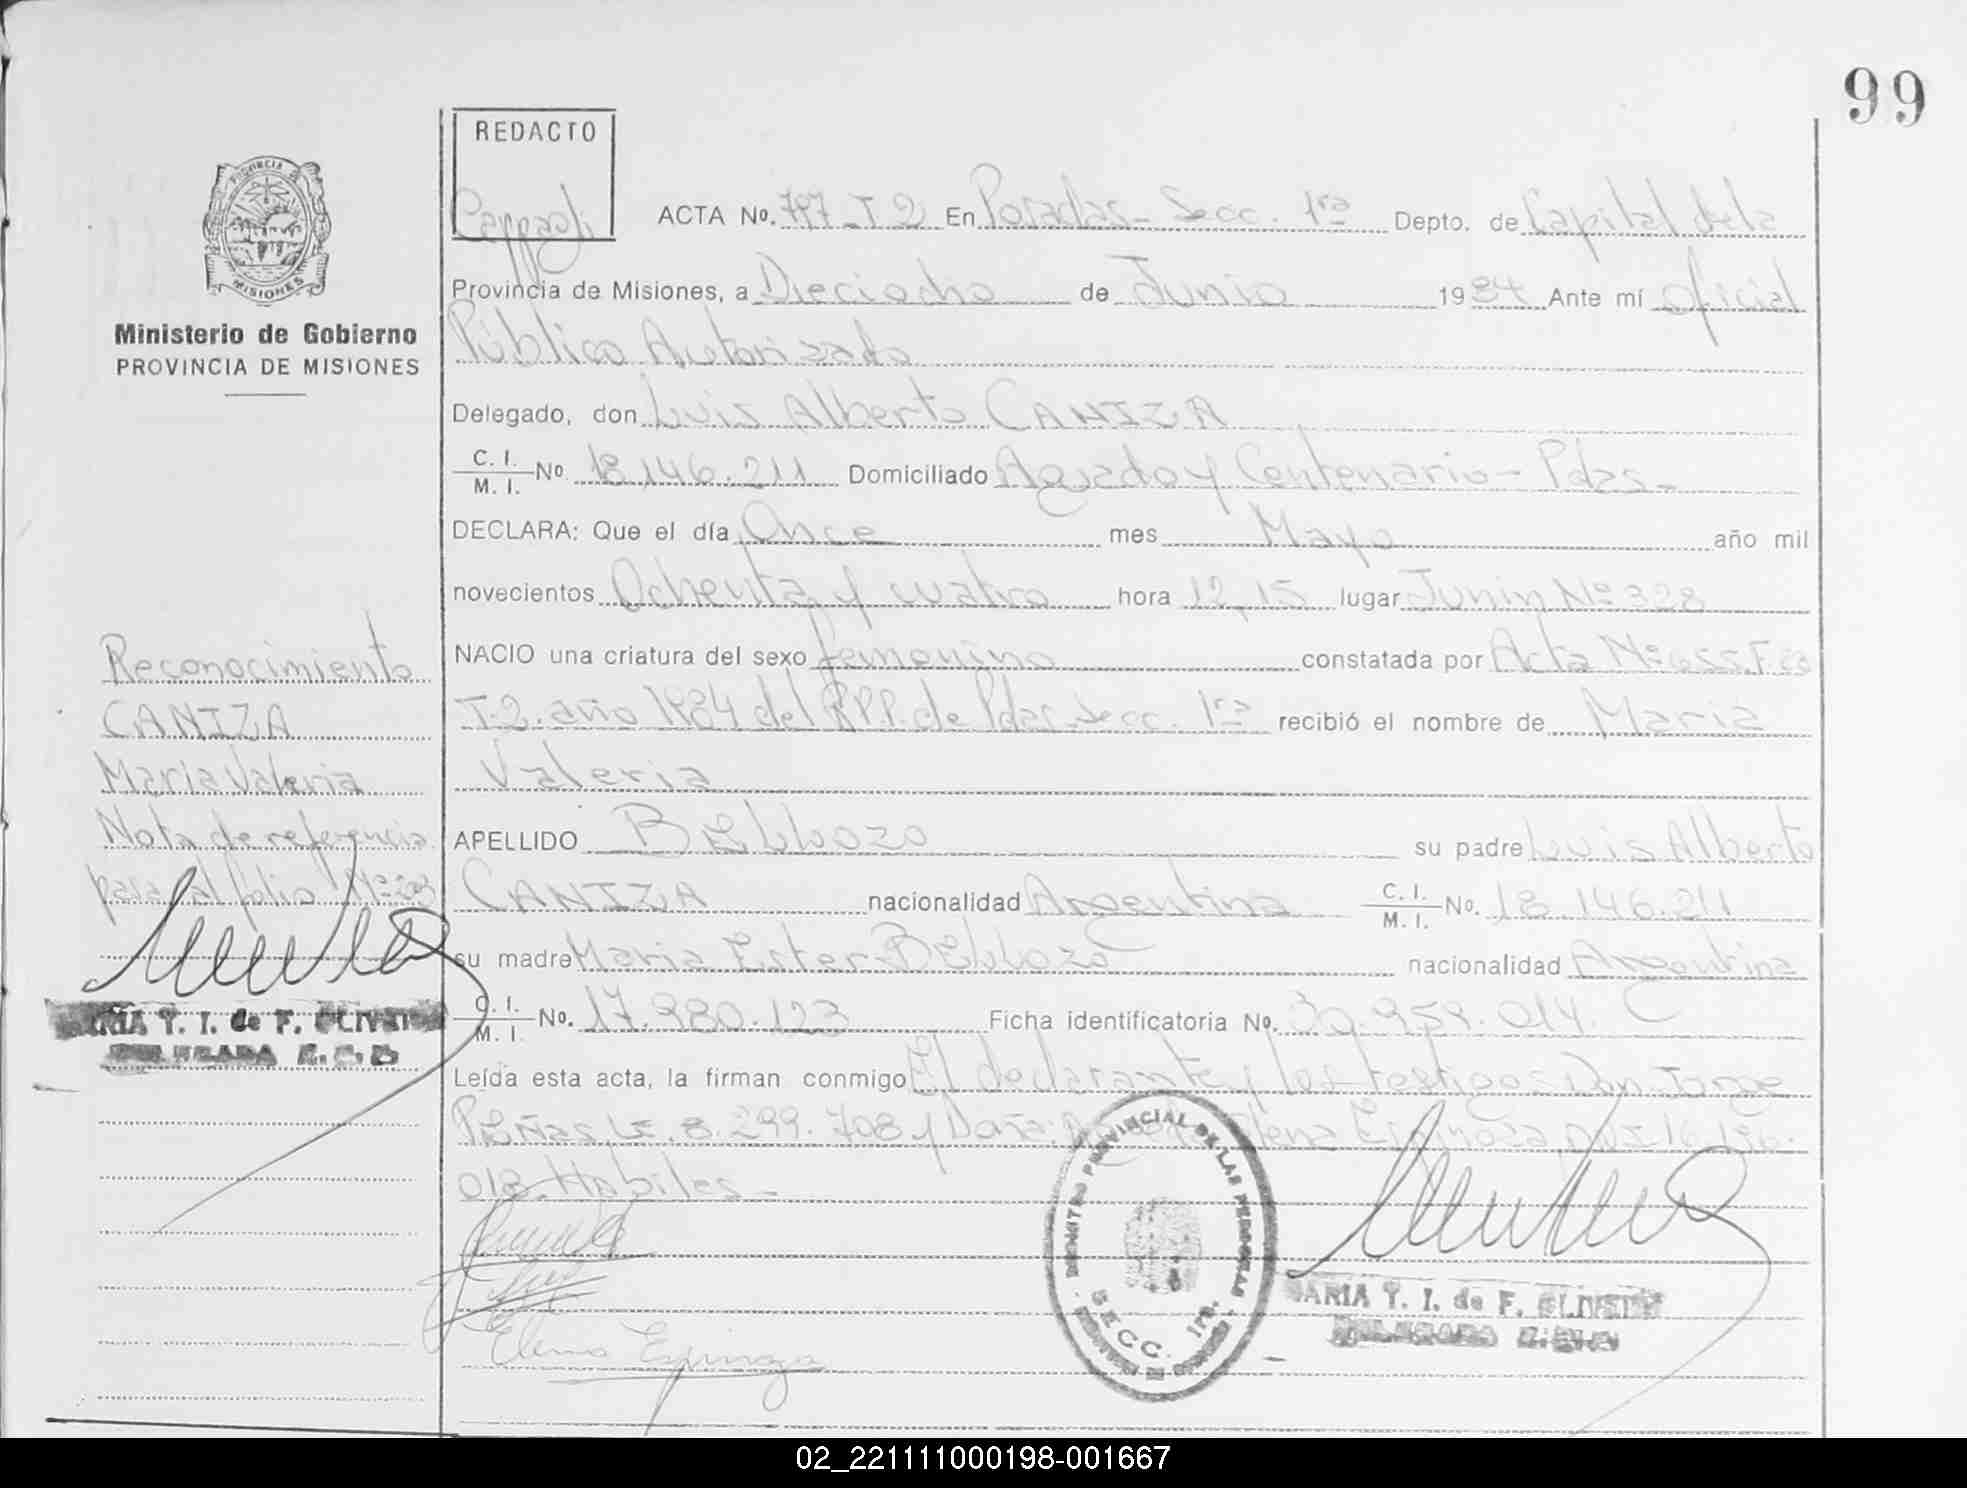 99
REDACTO
ACTA Nº. 797 T 2 En Posadas - Secc. 1ra Depto. de Capital dela
PROVINCIA DE
MISIONES
Provincia de Misiones, a Dieciocho de Junio 1984 Ante mí Oficial
Ministerio de Gobierno
PROVINCIA DE MISIONES
Público Autorizado
Delegado, don Luis Alberto CANIZA
C. I.
M. I. Nº 18.146.211 Domiciliado Aguado y Centenario - Pdas.
DECLARA: Que el día Once mes Mayo año mil
novecientos Ochenta y cuatro hora 12,15 lugar Junin Nº 328
NACIO una criatura del sexo femenino constatada por Acta Nº 655.F.
T.2. año 1984 del R.P.P. de Pdas. Secc. 1ra recibió el nombre de Maria
Valeria
APELLIDO BELLOZO su padre Luis Alberto
CANIZA nacionalidad Argentina C. I.
M. I. Nº. 18.146.211
su madre Maria Ester BELLOZO nacionalidad Argentina
C. I.
M. I. Nº. 17.980.123 Ficha identificatoria Nº. 30.959.014. C
Leída esta acta, la firman conmigo El declarante y los testigos: Don Jorge
8.299.708 y Doña Elena Espinoza DNI 16.196.
018. Habiles -
Reconocimiento
CANIZA
Maria Valeria
Nota de referencia
para al folio Nº
MARIA T. I. de F. OLIVEIRA
DELEGADA
REGISTRO PROVINCIAL DE LAS PERSONAS
SECC. 1ra.
MARIA T. I. de F. OLIVEIRA
DELEGADA
Elena Espinoza
02_221111000198-001667